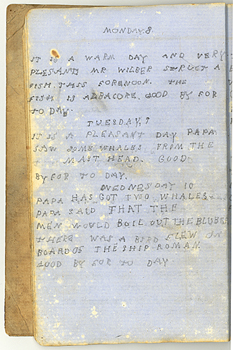 MONDAY. 8
IT IS A WARM DAY AND VERY
PLESANT. MR WILBER STRUCT A
FISH. THIS FORENOON. THE
FISH IS ALBACORE. GOOD BY FOR
TO DAY.
TUESDAY. 9
IT IS A PLEASANT DAY PAPA
SAW SOME WHALES. FROM THE
MAST HEAD. GOOD.
BY FOR TO DAY.
WEDNESDAY 10
PAPA HAS GOT TWO WHALES
PAPA SAID THAT THE
MEN WOULD BOIL OUT THE BLUBE
THERE WAS A BIRD FLEW ON
BOARD OF THE SHIP ROMAN.
GOOD BY FOR TO DAY